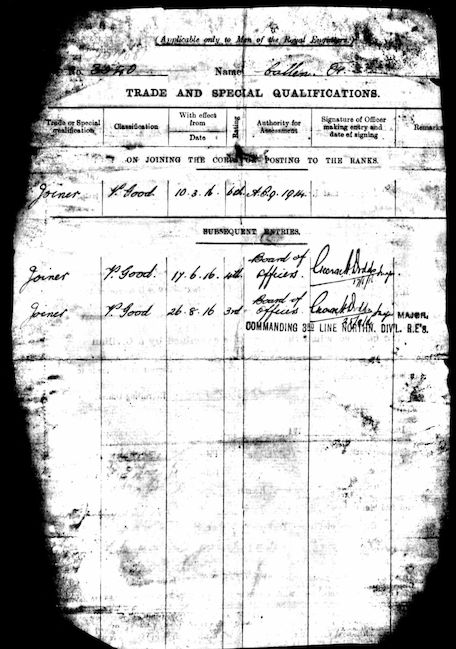 (Applicable only to Men of the Royal Engineers.)
No. 3340 Name Callen. O.
TRADE AND SPECIAL QUALIFICATIONS.
Trade or Special qualification. Classification With effect from Date Rating Authority for Assessment Signature of Officer making entry and date of signing Remarks
ON JOINING THE CORPS OR POSTING TO THE RANKS.
Joiner V. Good 10.3.16 6th A.C.9. 1914
SUBSEQUENT ENTRIES.
Joiner V. Good. 17.6.16 4th Board of Officers.
Joiner V. Good 26.8.16 3rd Board of Officers. MAJOR.
COMMANDING 3RD LINE NORTHN. DIVL. R.E's.